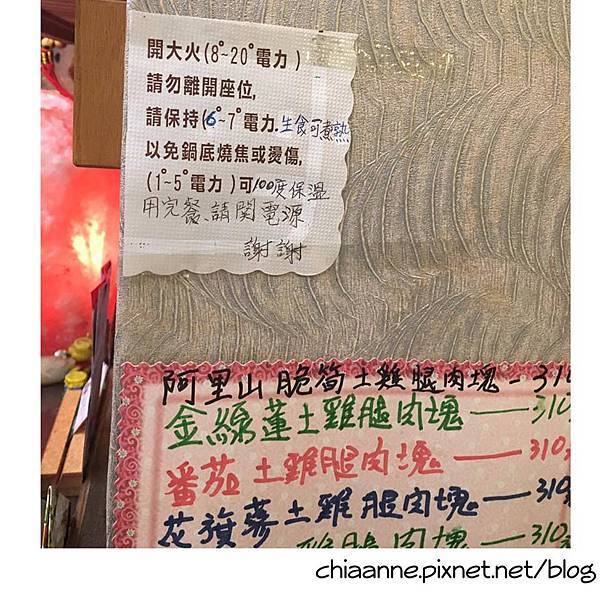 開大火(8°~20°電力)
請勿離開座位,
請保持(6°~7°電力.生食可煮熟
以免鍋底燒焦或燙傷,
(1°~5°電力)可100度保溫
用完餐、請関電源
謝謝
阿里山脆筍土雞腿肉塊-310
金線蓮土雞腿肉塊——310
番茄土雞腿肉塊——310
花旗蔘土雞腿肉塊——310
雞腿肉塊——310
chiaanne.pixnet.net/blog